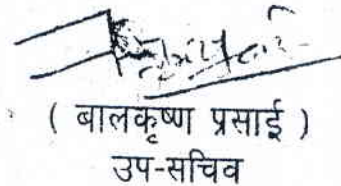 ( बालकृष्ण प्रसाई )
उप-सचिव